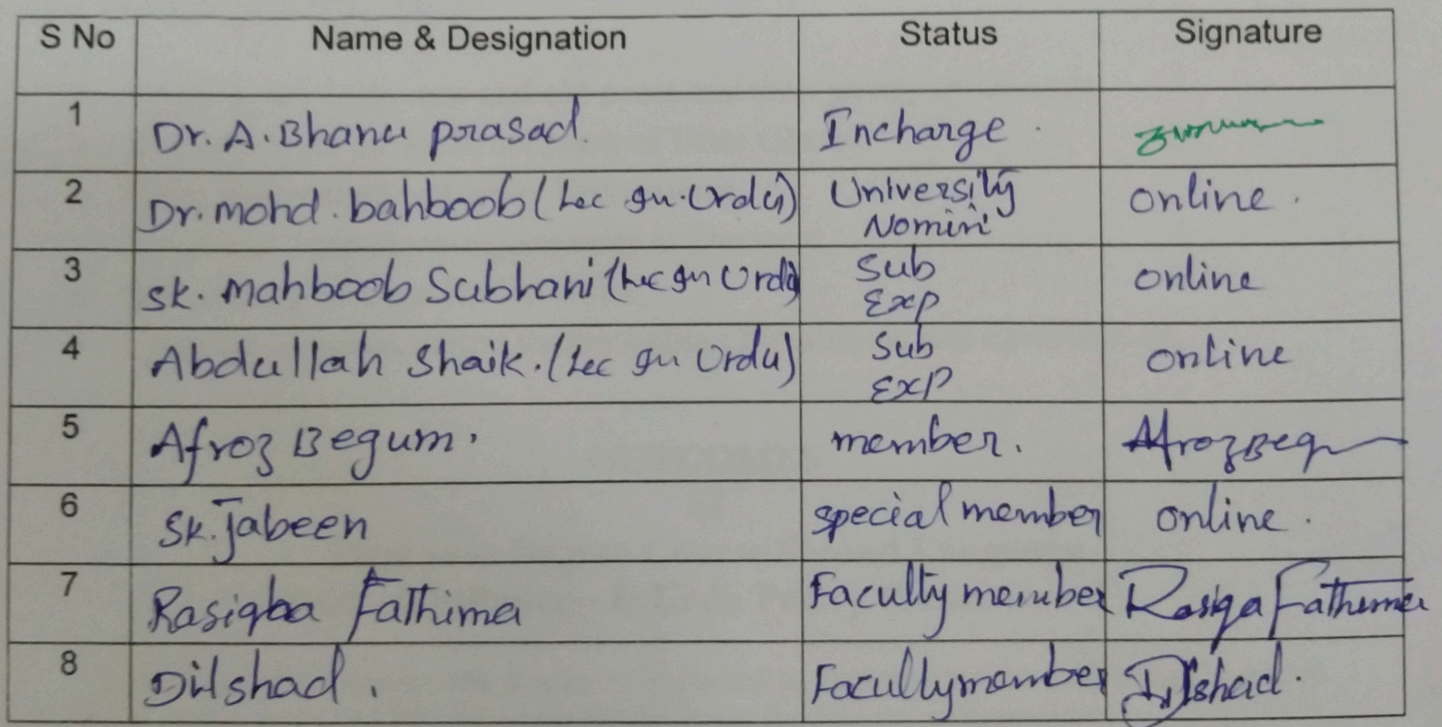 S No Name & Designation Status Signature
1 Dr. A. Bhanu prasad. Incharge
2 Dr. mohd. bahboob (Lec In. Urdu) University Nomini online.
3 Sk. Mahboob Subhani (Lec In Urdu) Sub Exp online
4 Abdullah Shaik. (Lec In Urdu) Sub Exp online
5 Afroz Begum. member. Afroz Beg
6 Sk. Jabeen special member online.
7 Rasiqha Fathima Faculty member Rasiqa Fathima
8 Dilshad. Facultymember Dilshad.